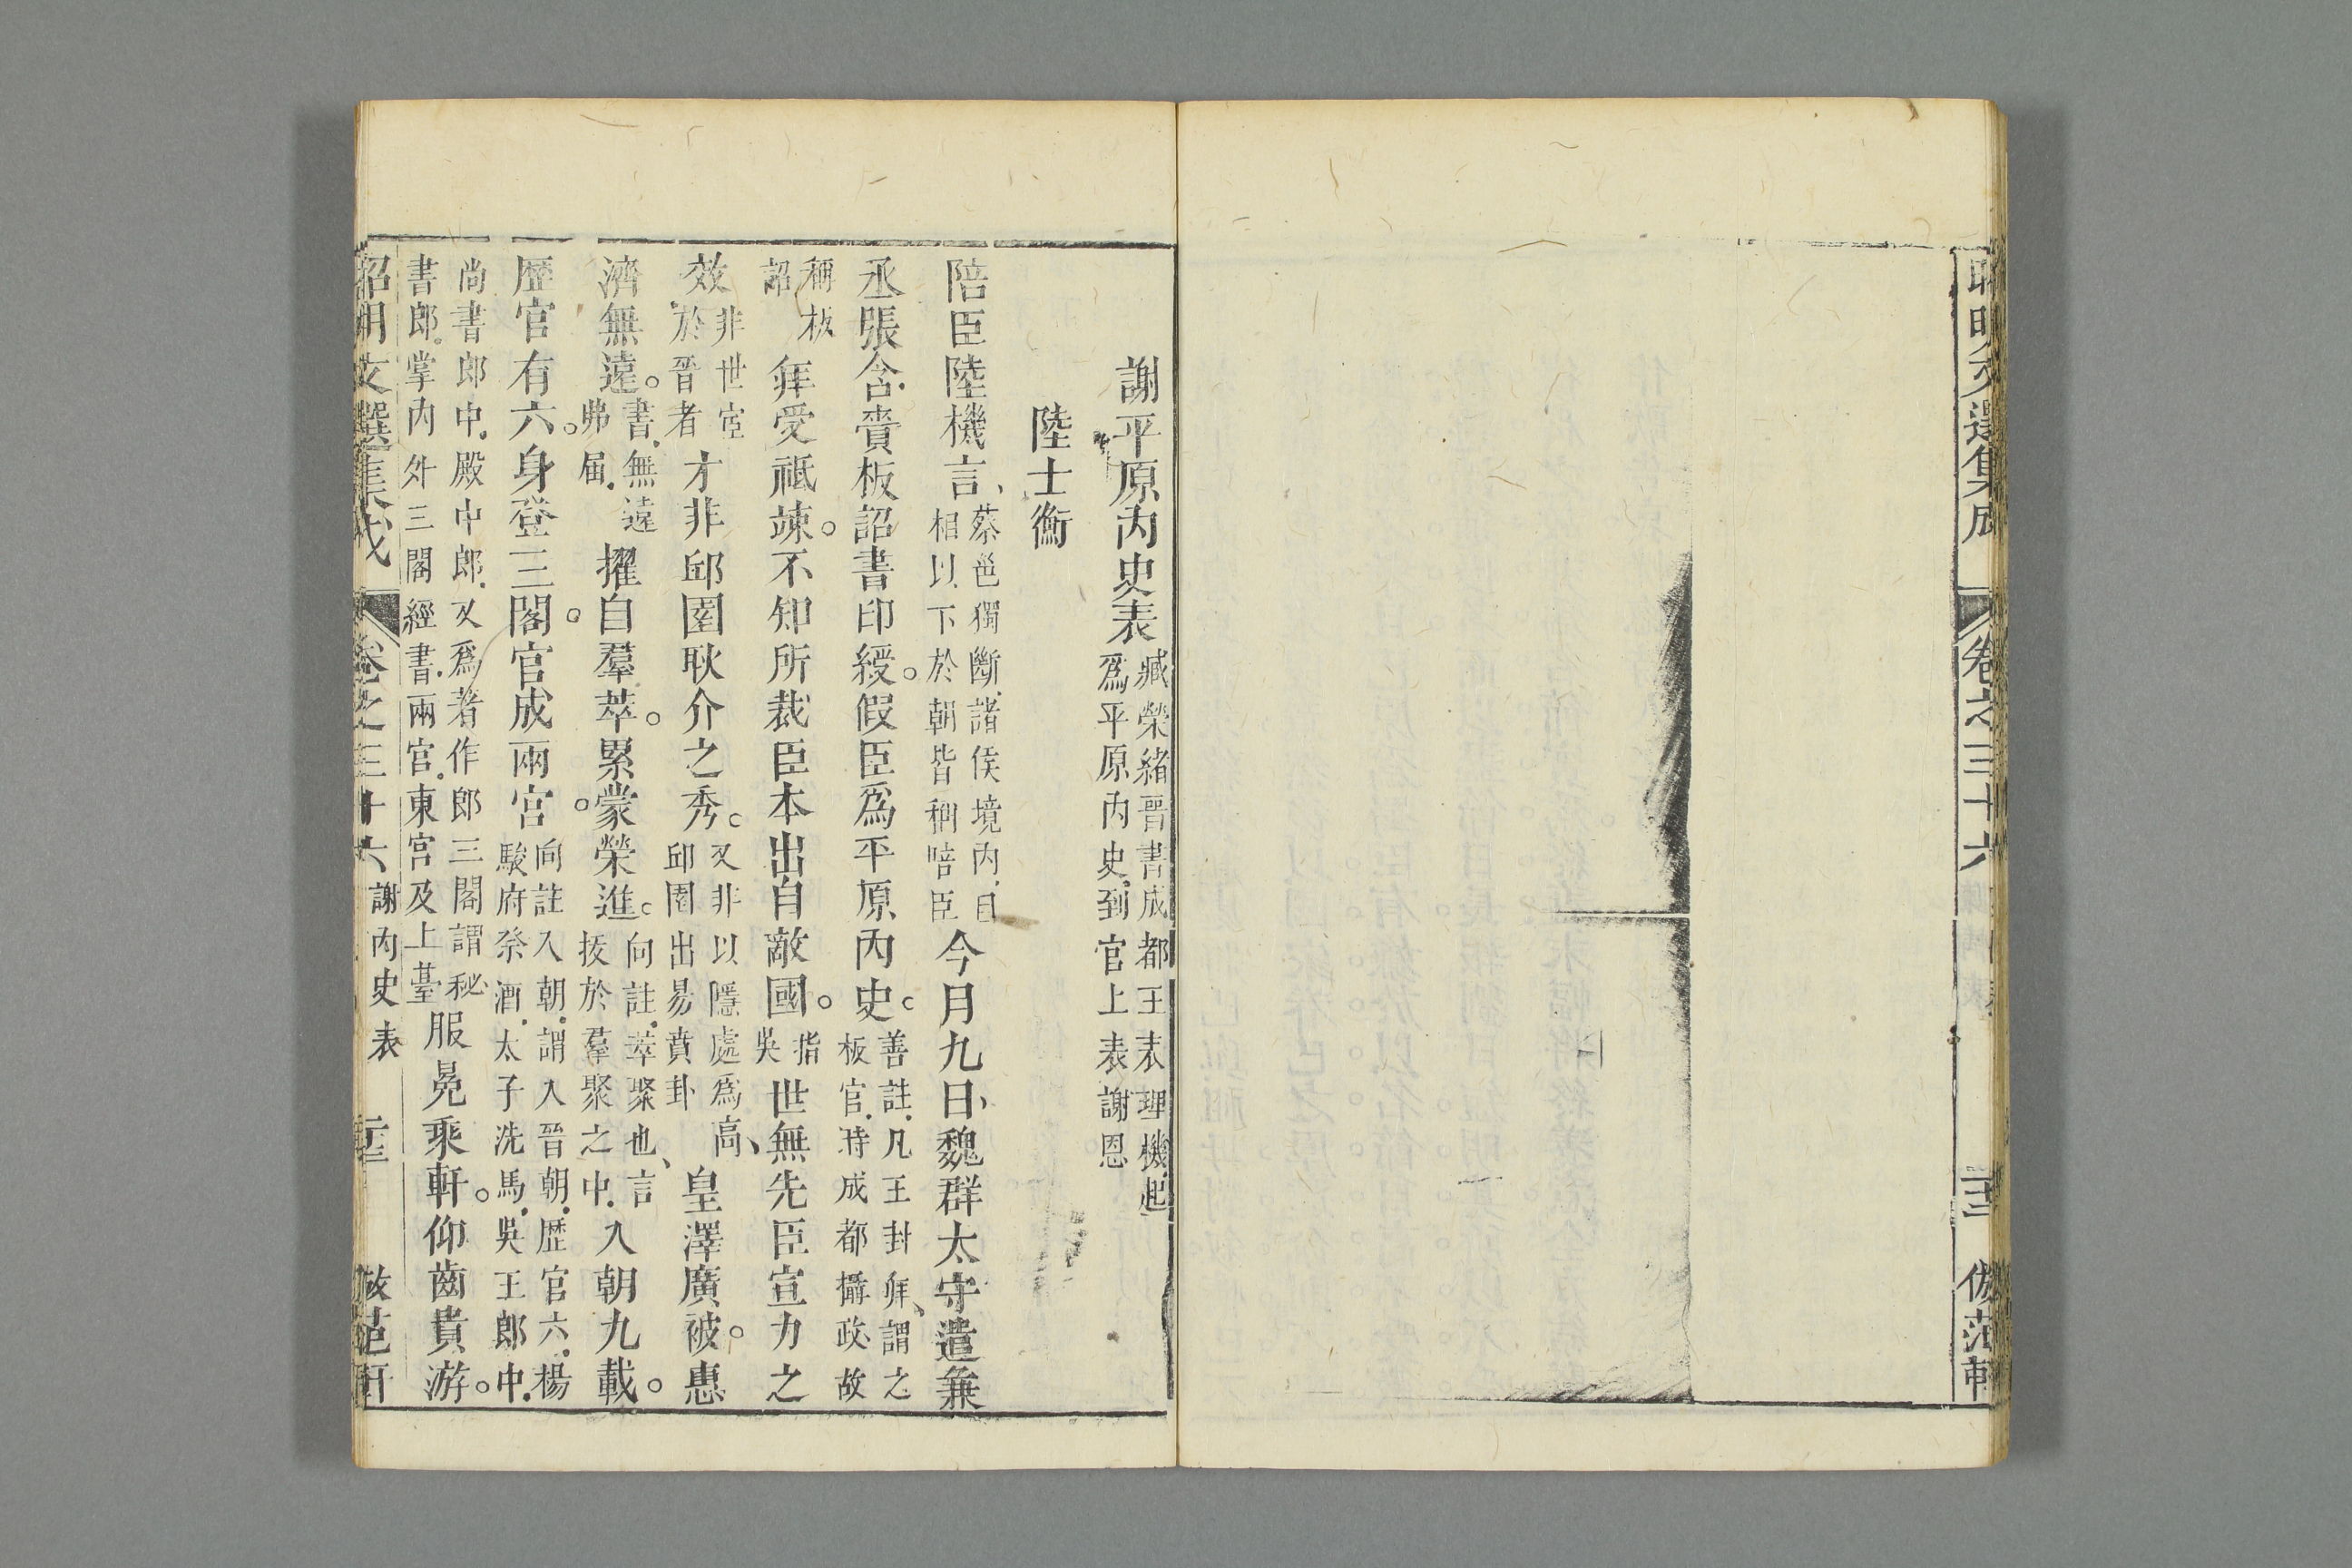 昭明文選集成 卷之三十六 二十二 倣范軒
謝平原内史表 臧榮緒晉書成都王表理機起爲平原内史到官上表謝恩
陸士衡
陪臣陸機言、蔡邕獨斷諸侯境内自相以下於朝皆稱陪臣 今月九日、魏群太守遣兼
丞張含賷板詔書印綬。假臣爲平原内史。善註凡王封拜、謂之板官時成都攝政故
稱板詔 拜受祗竦。不知所裁臣本出自敵國。指吳 世無先臣宣力之
效 非世宦於晉者 才非邱園耿介之秀。又非以隱處爲高、邱園出易賁卦 皇澤廣被。惠
濟無遠。書無遠弗届 擢自羣萃。累蒙榮進。向註萃聚也、言拔於羣聚之中 入朝九載。
歷官有六。身登三閣。官成兩宮。向註入朝謂入晉朝歷官六楊駿府祭酒太子洗馬吳王郎中
尚書郎中殿中郎又爲著作郎三閣謂秘書郎掌内外三閣經書兩官東宮及上臺 服冕乘軒。仰齒貴游。
昭明文選集成 卷之三十六 謝内史表 二十三 倣范軒